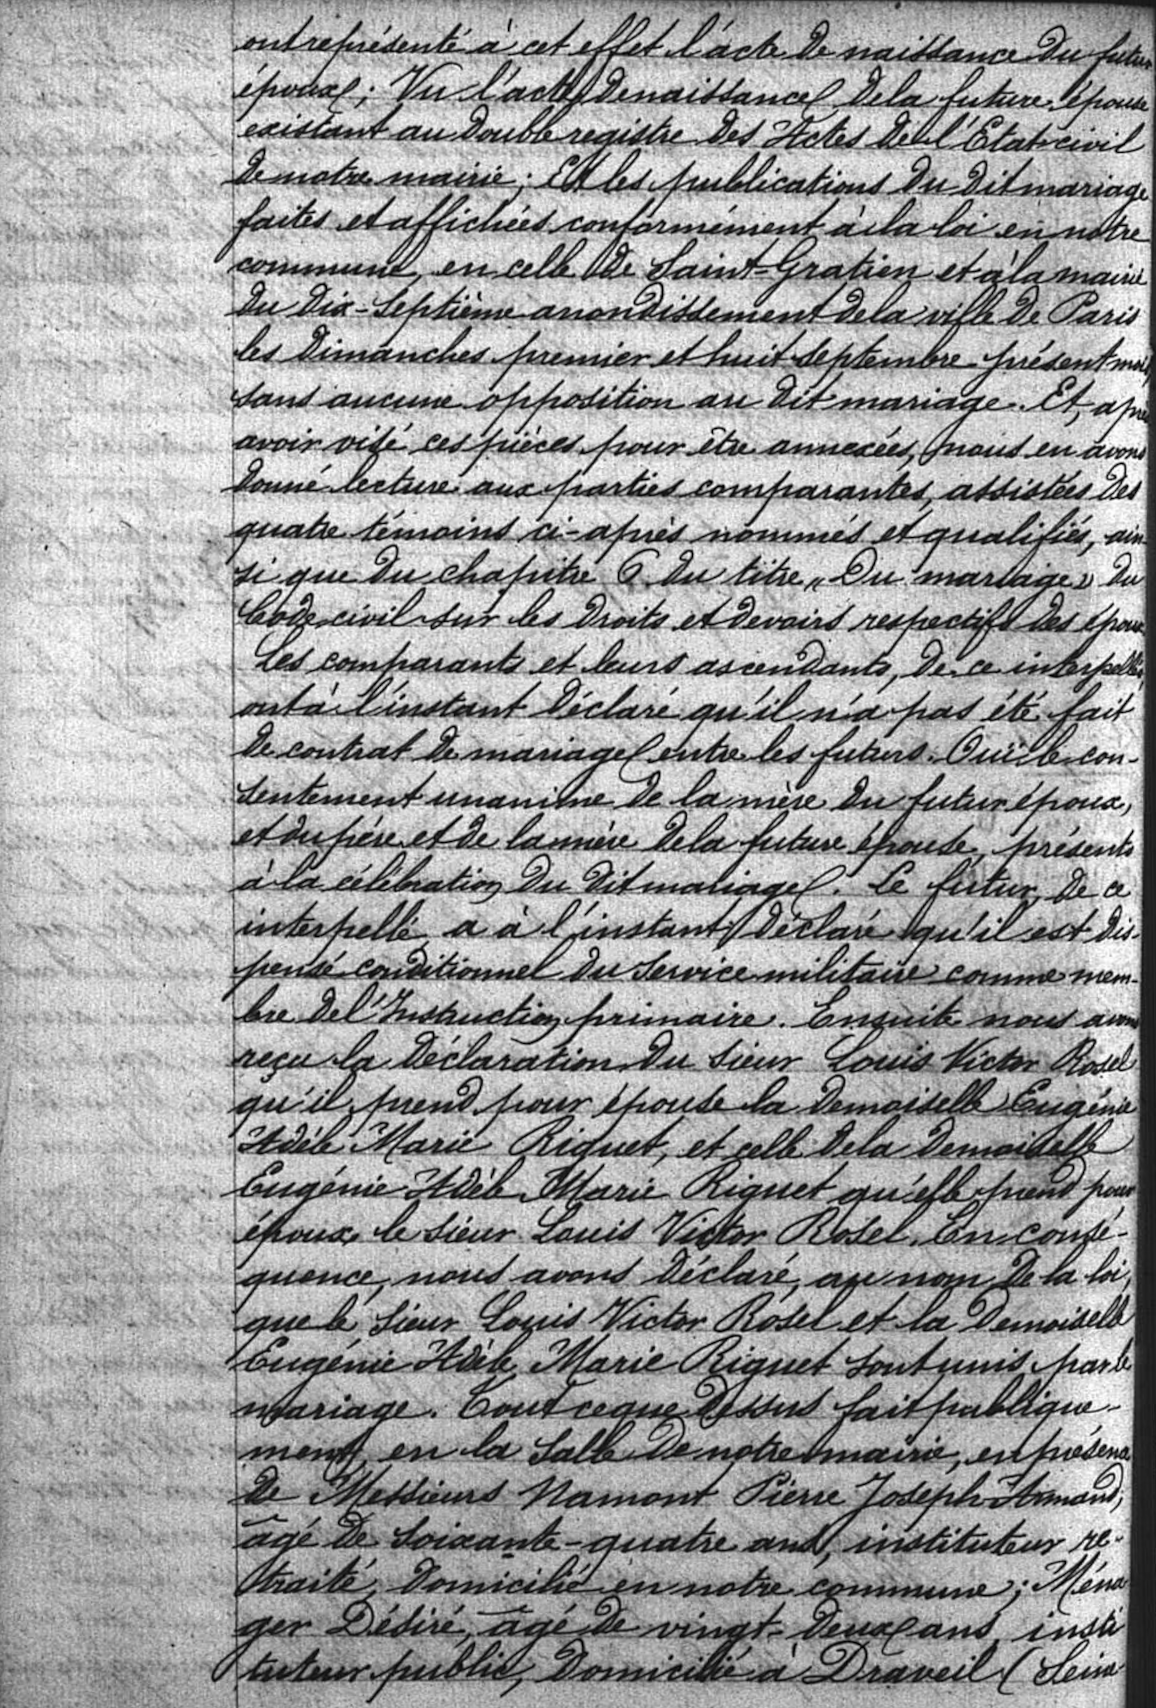 ont représenté à cet effet l'acte de naissance du futur
époux; Vu l'acte de naissance de la future épouse
existant au double registre des Actes de l'Etat-civil
de notre mairie; Et les publications du dit mariage
faites et affichées conformément à la loi en notre
commune, en celle de Saint-Gratien et à la mairie
du dix-septième arrondissement de la ville de Paris
les dimanches premier et huit septembre présent mois,
sans aucune opposition au dit mariage. Et, après
avoir visé ces pièces pour être annexées, nous en avons
donné lecture aux parties comparantes, assistées des
quatre témoins ci-après nommés et qualifiés, ain-
si que du chapitre 6 du titre „Du mariage" du
Code civil sur les droits et devoirs respectifs des époux
Les comparants et leurs ascendants, de ce interpellés,
ont à l'instant déclaré qu'il n'a pas été fait
de contrat de mariage entre les futurs. Ouï le con-
sentement unanime de la mère du futur époux,
et du père et de la mère de la future épouse, présents
à la célébration du dit mariage. Le futur, de ce
interpellé, a à l'instant déclaré qu'il est dis-
pensé conditionnel du service militaire comme mem-
bre de l'Instruction primaire. Ensuite nous avons
reçu la déclaration du sieur Louis Victor Rosel
qu'il prend pour épouse la demoiselle Eugénie
Adèle Marie Riquet, et celle de la demoiselle
Eugénie Adèle Marie Riquet qu'elle prend pour
époux le sieur Louis Victor Rosel. En consé-
quence, nous avons déclaré, au nom de la loi,
que le sieur Louis Victor Rosel et la demoiselle
Eugénie Adèle Marie Riquet sont unis par le
mariage. Tout ce que dessus fait publique-
ment, en la salle de notre mairie, en présence
de Messieurs Namont Pierre Joseph Armand,
âgé de soixante-quatre ans, instituteur re-
traité, domicilié en notre commune; Ména-
ger Désiré, âgé de vingt-deux ans, insti
tuteur public, domicilié à Draveil (Seine-